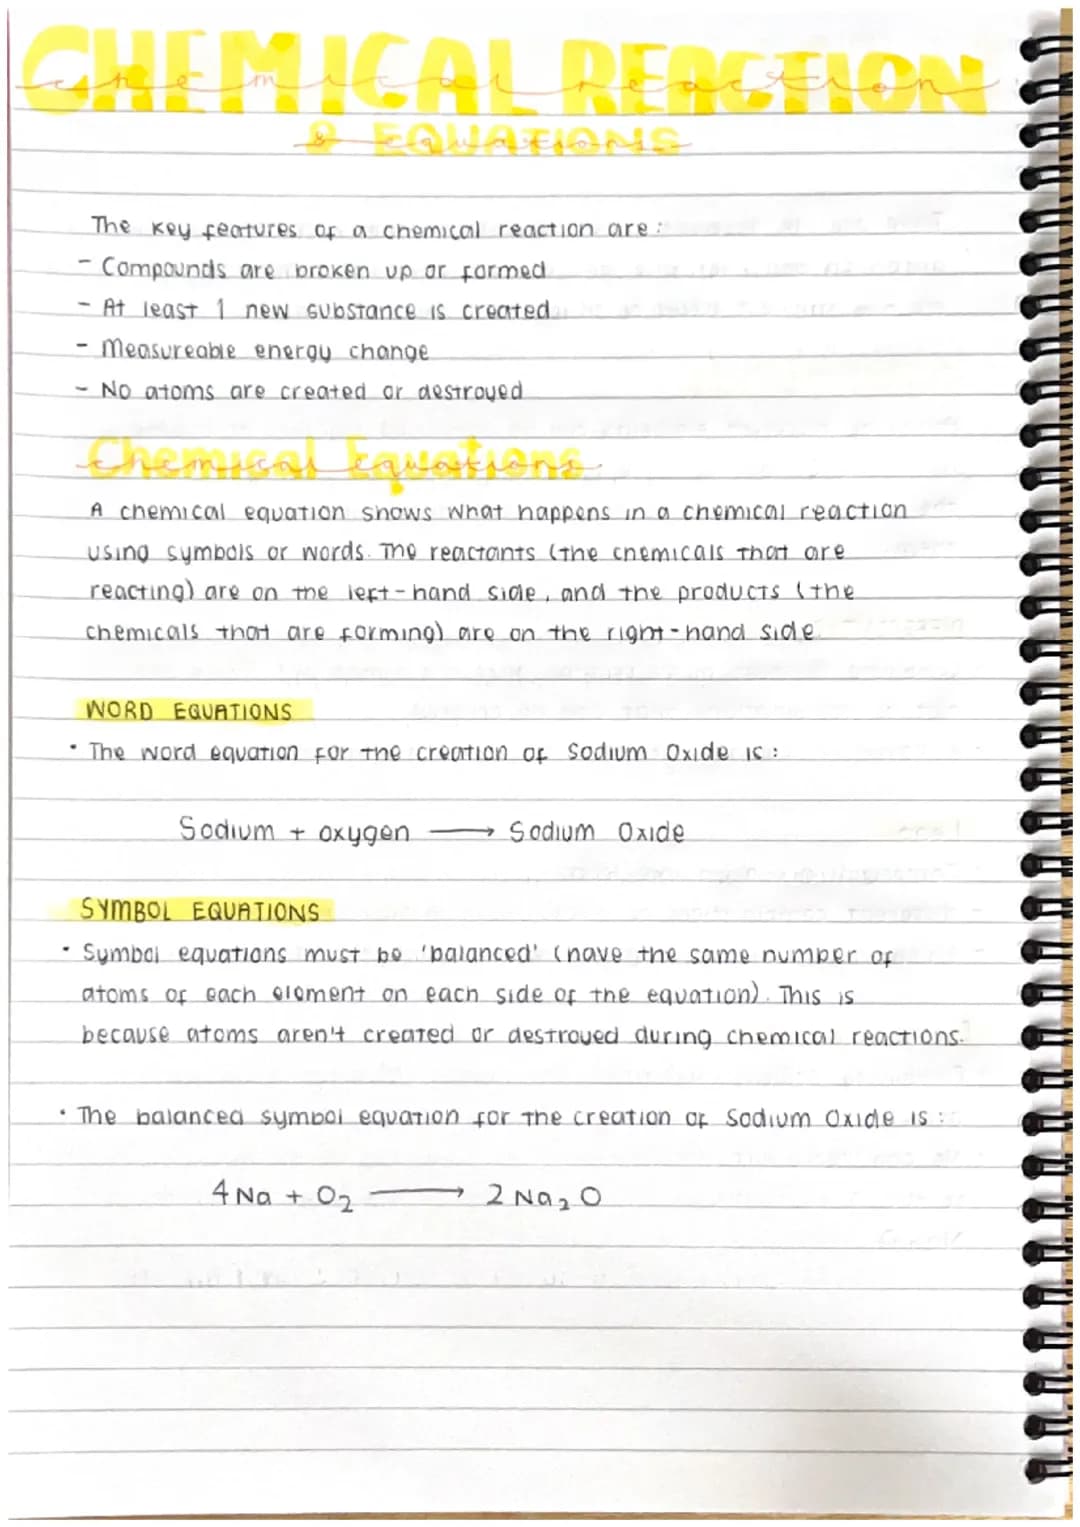 CHEMICAL REACTION
chemical reaction
& EQUATIONS
& equations
The key features of a chemical reaction are:
- Compounds are broken up or formed
- At least 1 new substance is created
- Measureable energy change
- No atoms are created or destroyed
Chemical Equations
A chemical equation shows what happens in a chemical reaction
using symbols or words. The reactants (the chemicals that are
reacting) are on the left-hand side, and the products (the
chemicals that are forming) are on the right-hand side
WORD EQUATIONS
• The word equation for the creation of Sodium Oxide is:
Sodium + oxygen → Sodium Oxide
SYMBOL EQUATIONS
• Symbol equations must be 'balanced' (have the same number of
atoms of each element on each side of the equation). This is
because atoms aren't created or destroyed during chemical reactions.
• The balanced symbol equation for the creation of Sodium Oxide is:
4Na + O₂ → 2Na₂O